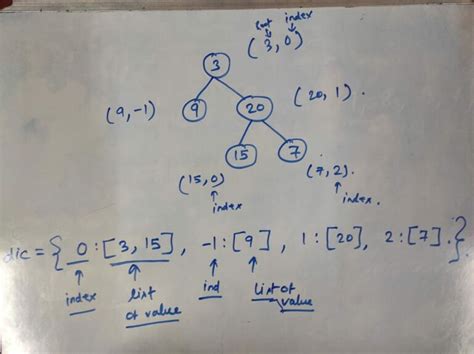 root index
(3, 0)
3
(9, -1) 9 20 (20, 1)
15 7
(15, 0) (7, 2)
index index
dic = { 0 : [3, 15], -1 : [9], 1 : [20], 2 : [7] }
index list of value ind List of value